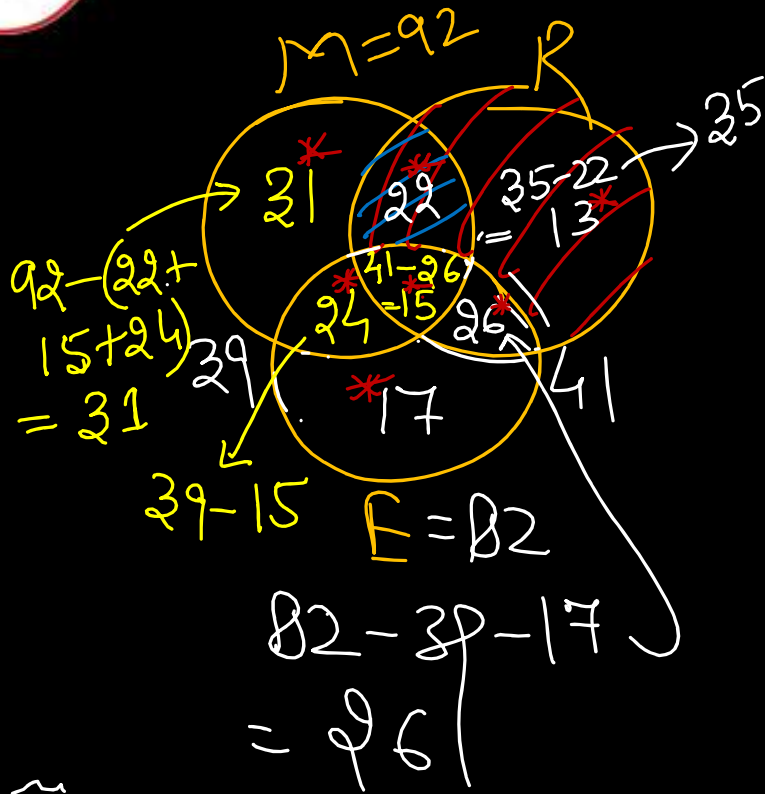 M=92
R
35
31
22
35-22
= 13
92-(22+
15+24)
= 31
41-26
=15
24
26
39
41
17
39-15
E = 82
82-39-17
= 26